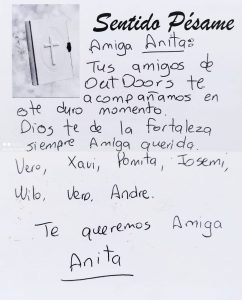 Sentido Pésame
Amiga Anita:
Tus amigos de
OutDoors te
acompañamos en
este duro momento.
Dios te de la fortaleza
siempre Amiga querida.
Vero, Xavi, Pomita, Iosemi,
Wilo, Vero, Andre.
Te queremos Amiga
Anita